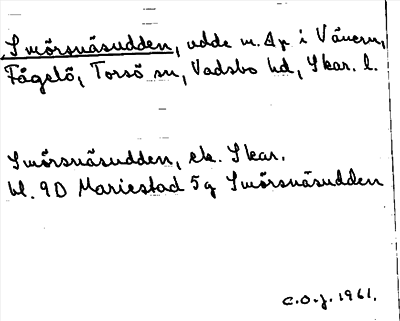 Smörsnäsudden, udde m. dp i Vänern,
Fågelö, Torsö sn, Vadsbo hd, Skar. l.
Smörsnäsudden, ek. Skar.
bl. 9D Mariestad 5g Smörsnäsudden
C.O.J. 1961.